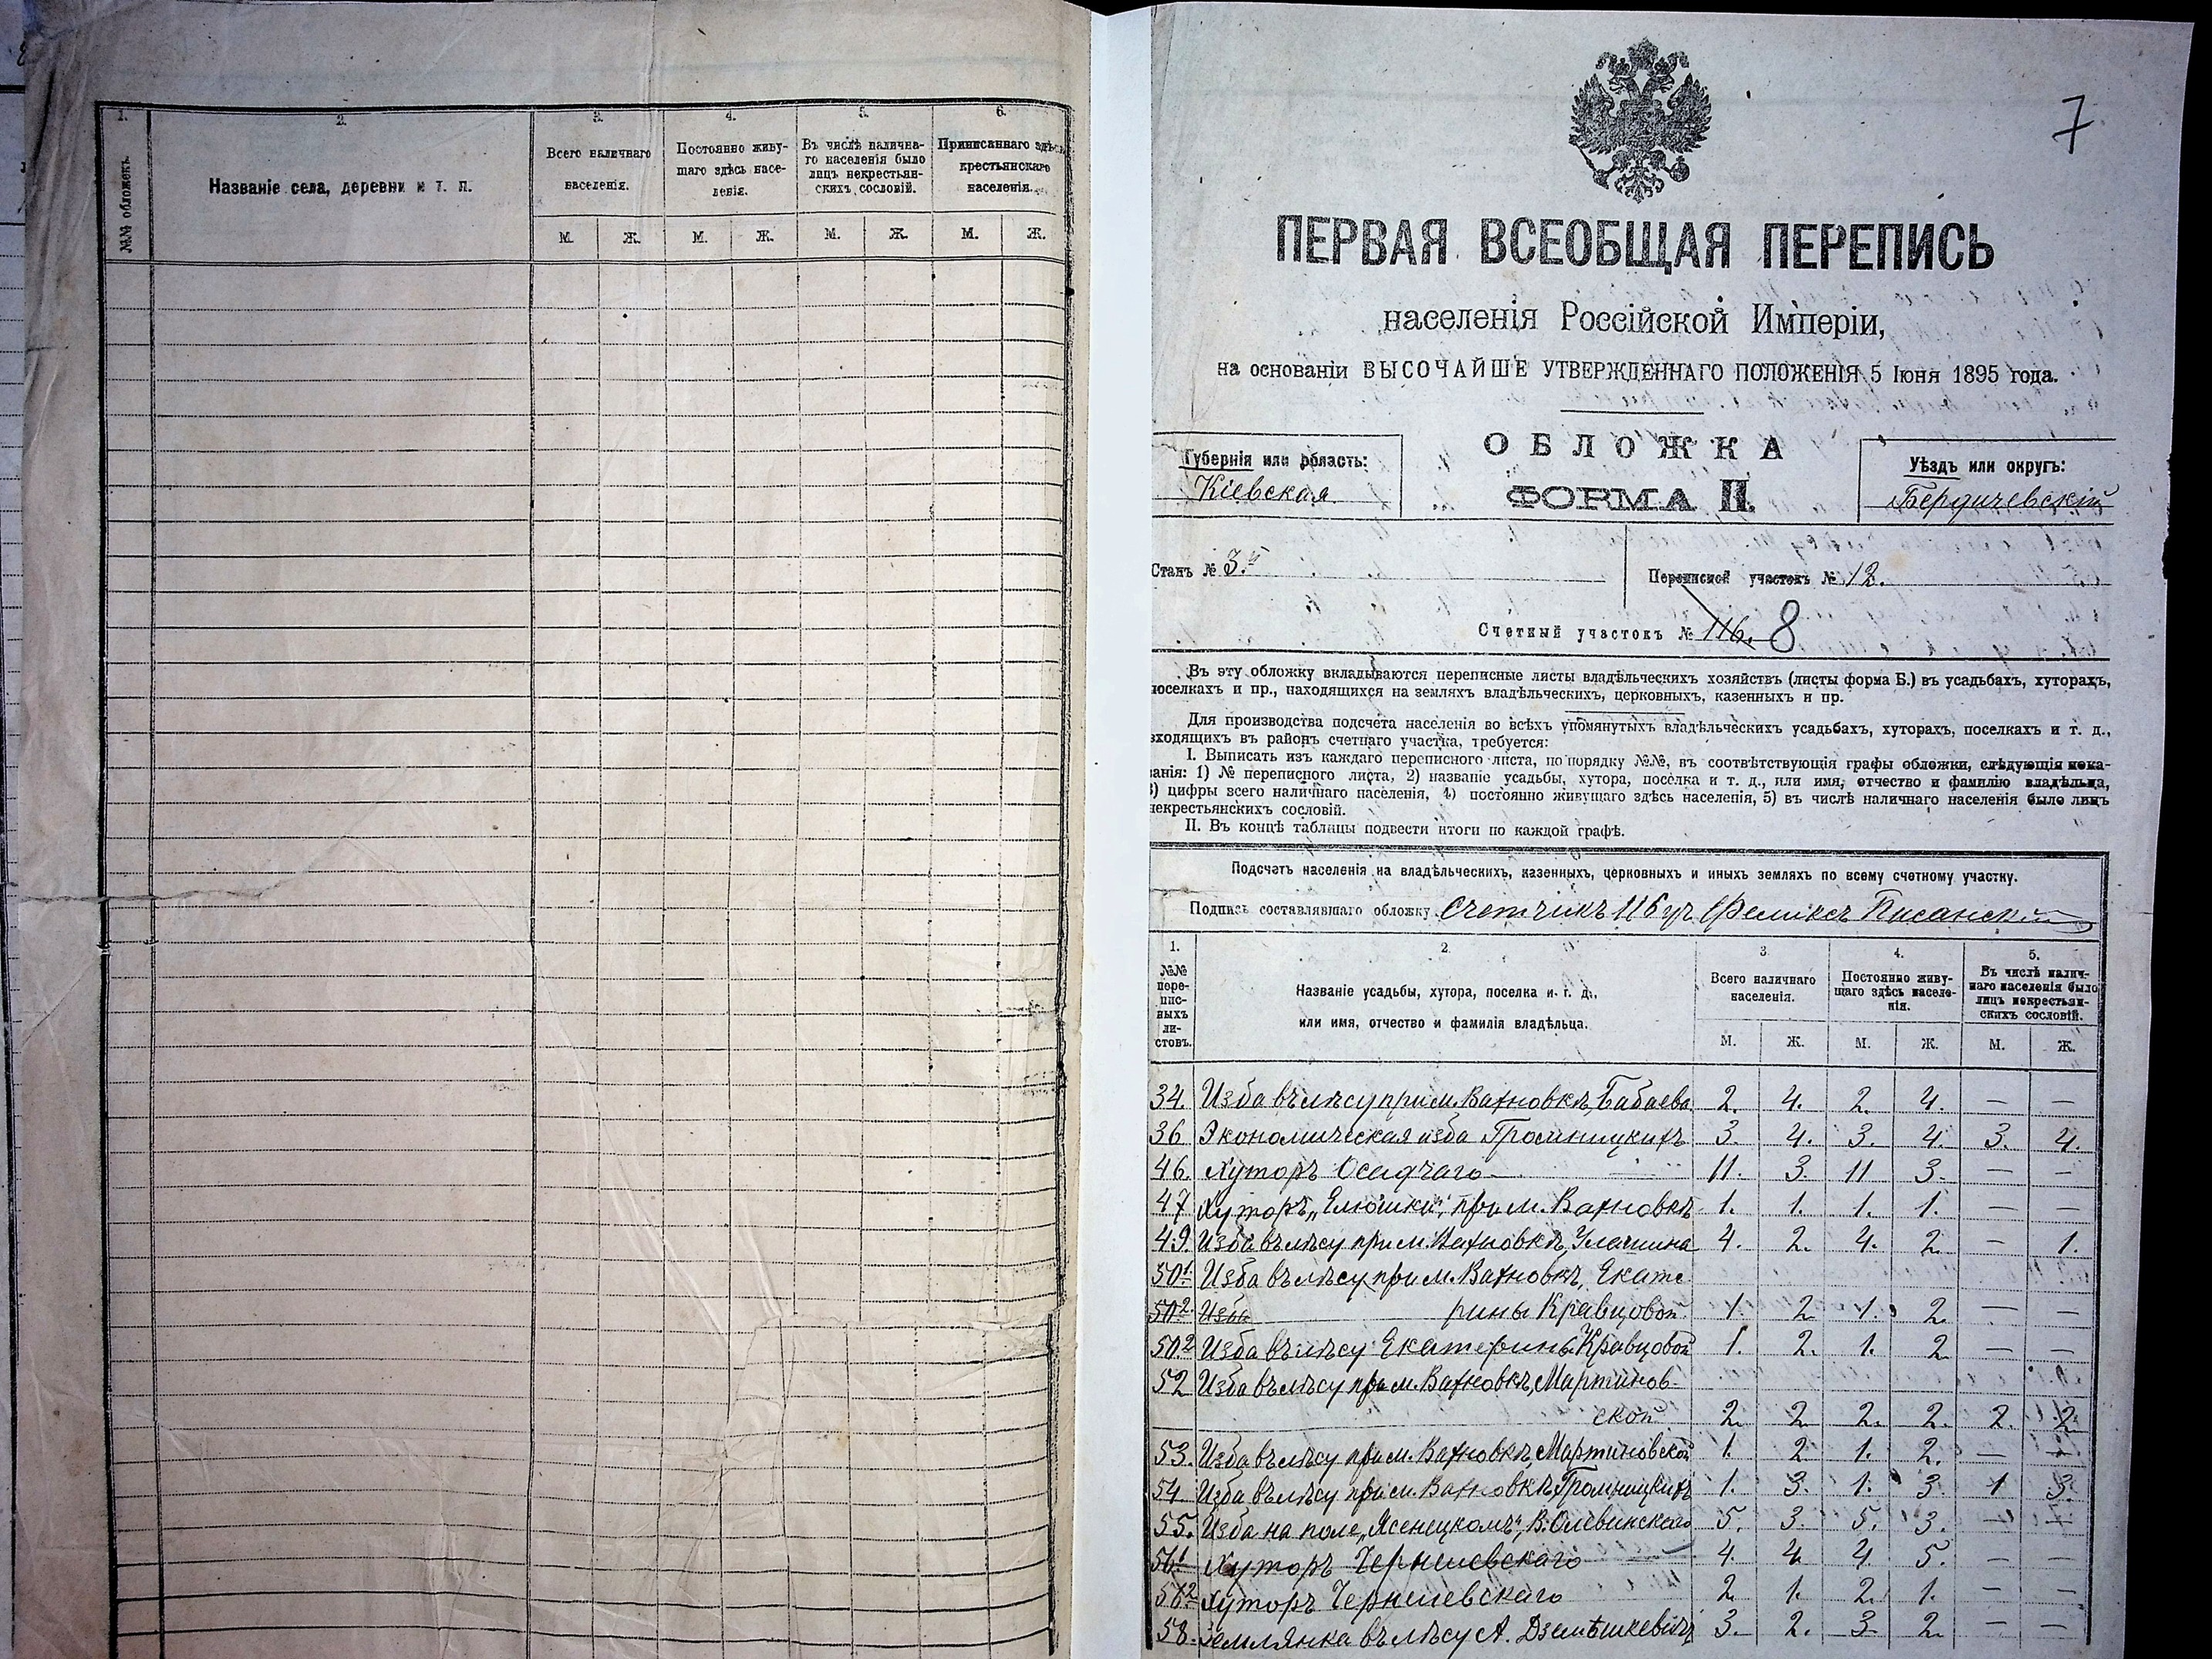 1.
2.
3.
4.
5.
6.
№№ обложекъ.
Названіе села, деревни и т. п.
Всего наличнаго
населенія.
Постоянно живу-
щаго здѣсь насе-
ленія.
Въ числѣ налична-
го населенія было
лицъ некрестьян-
скихъ сословій.
Приписаннаго здѣсь
крестьянскаго
населенія.
М. Ж. М. Ж. М. Ж. М. Ж.
7
ПЕРВАЯ ВСЕОБЩАЯ ПЕРЕПИСЬ
населенія Россійской Имперіи,
на основаніи ВЫСОЧАЙШЕ УТВЕРЖДЕННАГО ПОЛОЖЕНІЯ 5 Іюня 1895 года.
Губернія или область:
Кіевская
ОБЛОЖКА
ФОРМА II.
Уѣздъ или округъ:
Бердичевскій
Станъ № 3.й
Переписной участокъ № 12.
Счетный участокъ № 116. 8
Въ эту обложку вкладываются переписные листы владѣльческихъ хозяйствъ (листы форма Б.) въ усадьбахъ, хуторахъ,
поселкахъ и пр., находящихся на земляхъ владѣльческихъ, церковныхъ, казенныхъ и пр.
Для производства подсчета населенія во всѣхъ упомянутыхъ владѣльческихъ усадьбахъ, хуторахъ, поселкахъ и т. д.,
входящихъ въ районъ счетнаго участка, требуется:
I. Выписать изъ каждаго переписного листа, по порядку №№, въ соотвѣтствующія графы обложки, слѣдующія пока-
занія: 1) № переписного листа, 2) названіе усадьбы, хутора, поселка и т. д., или имя, отчество и фамилію владѣльца,
3) цифры всего наличнаго населенія, 4) постоянно живущаго здѣсь населенія, 5) въ числѣ наличнаго населенія было лицъ
некрестьянскихъ сословій.
II. Въ концѣ таблицы подвести итоги по каждой графѣ.
Подсчетъ населенія на владѣльческихъ, казенныхъ, церковныхъ и иныхъ земляхъ по всему счетному участку.
Подпись составлявшаго обложку Счетчикъ 116 уч Феликсъ Писанскій
1.
2.
3.
4.
5.
№№
пере-
пис-
ныхъ
ли-
стовъ.
Названіе усадьбы, хутора, поселка и т. д.,
или имя, отчество и фамилія владѣльца.
Всего наличнаго
населенія.
Постоянно живу-
щаго здѣсь населе-
нія.
Въ числѣ налич-
наго населенія было
лицъ некрестьян-
скихъ сословій.
М. Ж. М. Ж. М. Ж.
34. Изба въ лѣсу при м. Вахновкѣ, Бабаева 2. 4. 2. 4. — —
36 Экономическая изба Громницкихъ 3. 4. 3. 4. 3. 4.
46. Хуторъ Осадчаго 11. 3. 11 3. — —
47 Хуторъ „Елюшки“, при м. Вахновкѣ 1. 1. 1. 1. — —
49. Изба въ лѣсу при м. Вахновкѣ, 4. 2. 4. 2. — 1.
50.1 Изба въ лѣсу при м. Вахновкѣ, Екате
50.2 Изба рины Кравцовой 1. 2 1. 2. — —
50.2 Изба въ лѣсу Екатерины Кравцовой 1. 2. 1. 2. — —
52 Изба въ лѣсу при м. Вахновкѣ, Мартинов-
ской 2. 2. 2. 2. 2. 2.
53. Изба въ лѣсу при м. Вахновкѣ, Мартиновской 1. 2 1. 2. — —
54 Изба въ лѣсу при м. Вахновкѣ Громницкихъ 1. 3. 1. 3. 1 3.
55. Изба на поле „Ясенецкомъ“, В. Олевинскаго 5. 3. 5. 3. — —
56.1 Хуторъ Чернелевскаго 4. 4. 4 5. — —
56.2 Хуторъ Чернелевскаго 2. 1. 2. 1. — —
58. Землянка въ лѣсу А. 3. 2. 3 2. — —